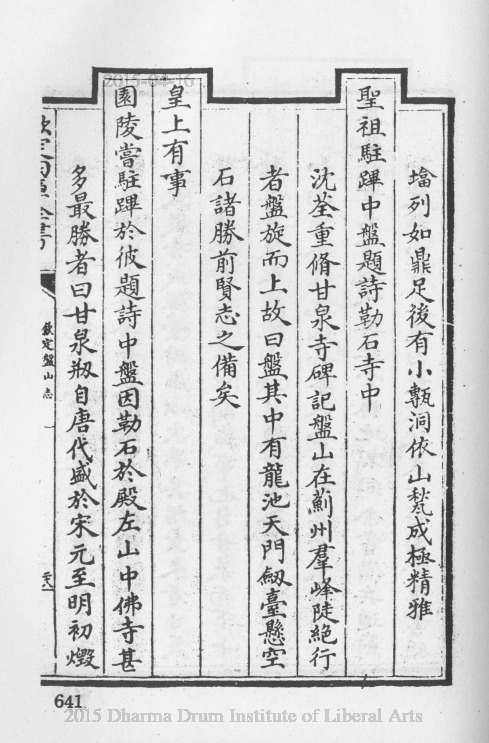 2015-04-16
㙮列如鼎足後有小甎洞依山甃成極精雅
聖祖駐蹕中盤題詩勒石寺中
沈荃重脩甘泉寺碑記盤山在薊州羣峰陡絕行
者盤旋而上故曰盤其中有龍池天門劒臺懸空
石諸勝前賢志之備矣
皇上有事
園陵嘗駐蹕於彼題詩中盤因勒石於殿左山中佛寺甚
多最勝者曰甘泉刱自唐代盛於宋元至明初燬
欽定四庫全書
欽定盤山志
641
2015 Dharma Drum Institute of Liberal Arts